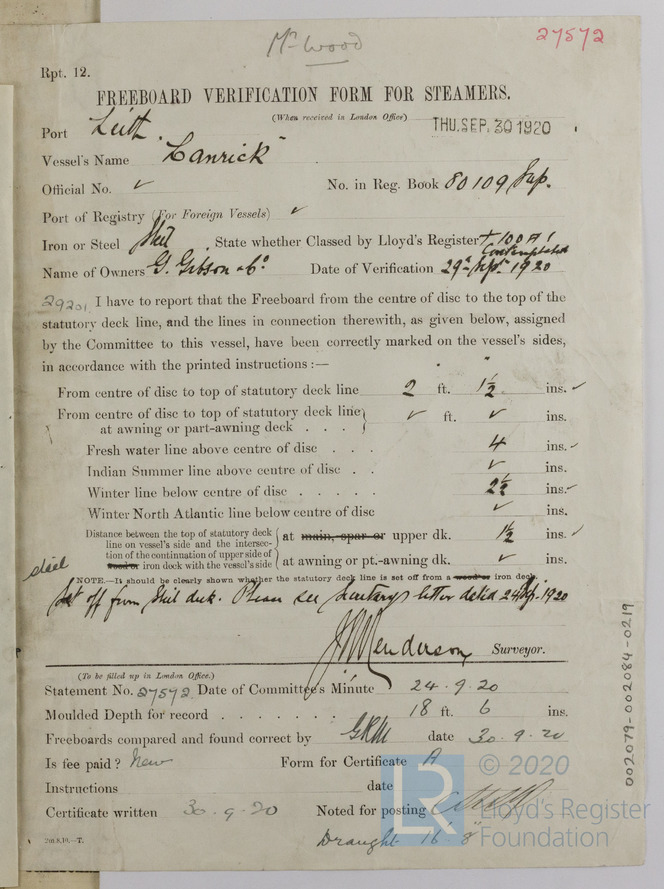 Mr Wood
27572
Rpt. 12.
FREEBOARD VERIFICATION FORM FOR STEAMERS.
(When received in London Office) THU. SEP. 30 1920
Port Leith.
Vessel's Name "Lanrick"
Official No. ✓ No. in Reg. Book 80109 Sup.
Port of Registry (For Foreign Vessels) ✓
Iron or Steel Steel State whether Classed by Lloyd's Register +100A1
Contemplated
Name of Owners G. Gibson & Co. Date of Verification 29th Sept. 1920
29201 I have to report that the Freeboard from the centre of disc to the top of the
statutory deck line, and the lines in connection therewith, as given below, assigned
by the Committee to this vessel, have been correctly marked on the vessel's sides,
in accordance with the printed instructions :—
From centre of disc to top of statutory deck line 2 ft. 1½ ins. ✓
From centre of disc to top of statutory deck line
at awning or part-awning deck . . . ✓ ft. ✓ ins.
Fresh water line above centre of disc . . . 4 ins. ✓
Indian Summer line above centre of disc . . ✓ ins.
Winter line below centre of disc . . . . . 2½ ins. ✓
Winter North Atlantic line below centre of disc ✓ ins.
Distance between the top of statutory deck
line on vessel's side and the intersec-
tion of the continuation of upper side of
wood or iron deck with the vessel's side
at main, spar or upper dk. 1½ ins. ✓
at awning or pt.-awning dk. ✓ ins.
steel
NOTE.—It should be clearly shown whether the statutory deck line is set off from a wood or iron deck.
Set off from Steel deck. Please see Secretary's letter dated 24 Sep. 1920
Henderson Surveyor.
(To be filled up in London Office.)
Statement No. 27572 Date of Committee's Minute 24.9.20
Moulded Depth for record . . . . . . . 18 ft. 6 ins.
Freeboards compared and found correct by GRM date 30.9.20
Is fee paid? New Form for Certificate A
Instructions date
Certificate written 30.9.20 Noted for posting
Draught 16' 8"
2m.8.10.—T.
002079-002084-0219
LR
© 2020
Lloyd's Register
Foundation